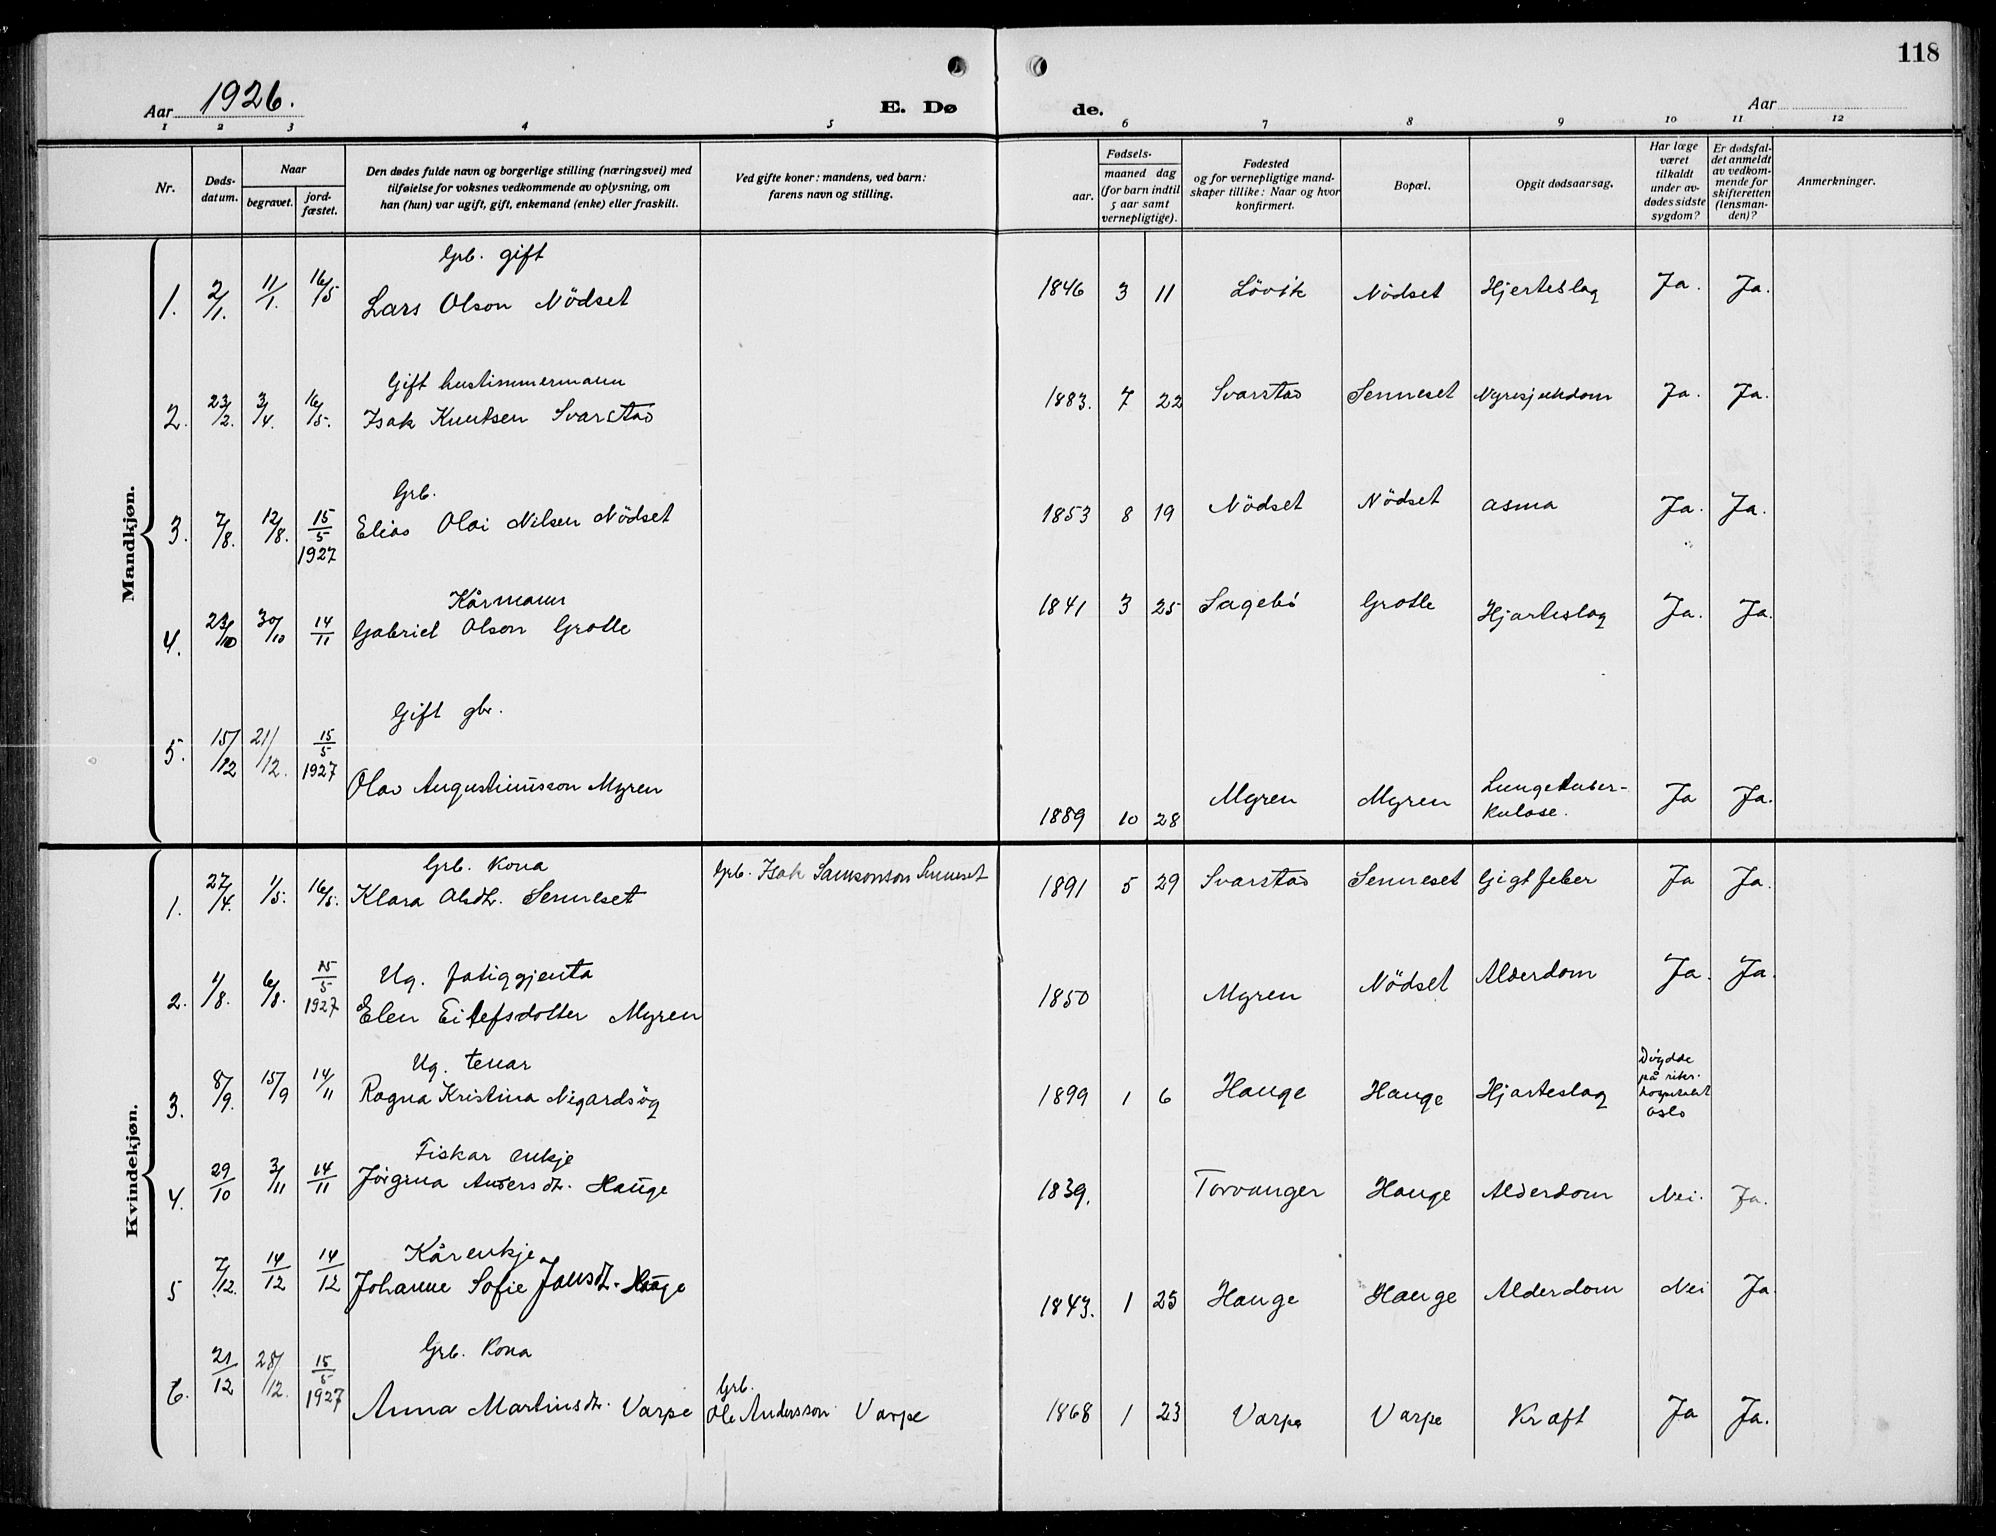 118
Aar 1926.
E. Dø
de.
Aar
1 2 3 4 5 6 7 8 9 10 11 12
Nr.
Døds-
datum.
Naar
begravet.
jord-
fæstet.
Den dødes fulde navn og borgerlige stilling (næringsvei) med
tilføielse for voksnes vedkommende av oplysning, om
han (hun) var ugift, gift, enkemand (enke) eller fraskilt.
Ved gifte koner: mandens, ved barn:
farens navn og stilling.
Fødsels-
aar.
maaned dag
(for barn indtil
5 aar samt
vernepligtige).
Fødested
og for vernepligtige mand-
skaper tillike: Naar og hvor
konfirmert.
Bopæl.
Opgit dødsaarsag.
Har læge
været
tilkaldt
under av-
dødes sidste
sygdom?
Er dødsfal-
det anmeldt
av vedkom-
mende for
skifteretten
(lensman-
den)?
Anmerkninger.
Mandkjøn.
Grb. gift
1. 2/1. 11/1. 16/5 Lars Olson Nödset 1846 3 11 Lövik Nödset Hjerteslag Ja. Ja.
Gift hustimmermann
2. 23/2. 3/4. 16/5. Isak Knutsen Svarstad 1883. 7 22 Svarstad Senneset Nyresjukdom Ja. Ja.
Grb.
3. 7/8. 12/8. 15/5 1927 Elias Olai Nilsen Nödset 1853 8 19 Nödset Nödset asma Ja. Ja.
Kårmann
4. 23/10 30/10 14/11 Gabriel Olson Grotle 1841 3 25 Sagebö Grotle Hjarteslag Ja. Ja.
Gift gbr.
5. 15/12 21/12. 15/5 1927 Olav Augustinusson Myren 1889 10 28 Myren Myren Lungetuber-
kulose. Ja Ja.
Kvindekjøn.
Grb. kona
1. 27/4. 1/5. 16/5. Klara Olsdtr. Senneset Grb. Isak Samsonson Senneset 1891 5 29 Svarstad Senneset Gigtfeber Ja Ja.
Ug. fatiggjenta
2. 1/8. 6/8. 15/5 1927 Elen Eilefsdotter Myren 1850 Myren Nödset Alderdom Ja. Ja.
Ug. tenar
3. 8/9. 15/9 14/11 Ragna Kristina Nigardsög 1899 1 6 Hauge Hauge Hjarteslag Döydde
på riks-
hospitalet
Oslo
Fiskar enkje
4. 29/10 3/11 14/11 Jörgina Andersdtr. Hauge 1839. Torvanger Hauge Alderdom Nei. Ja.
Kårenkje
5 7/12. 14/12 14/12 Johanne Sofie Jansdtr. Hauge 1843. 1 25 Hauge Hauge Alderdom Nei Ja.
Grb. kona
6. 21/12 28/12. 15/5 1927 Anna Martinsdtr. Varpe Grb.
Ole Andersson Varpe 1868 1 23 Varpe Varpe Kraft Ja Ja.